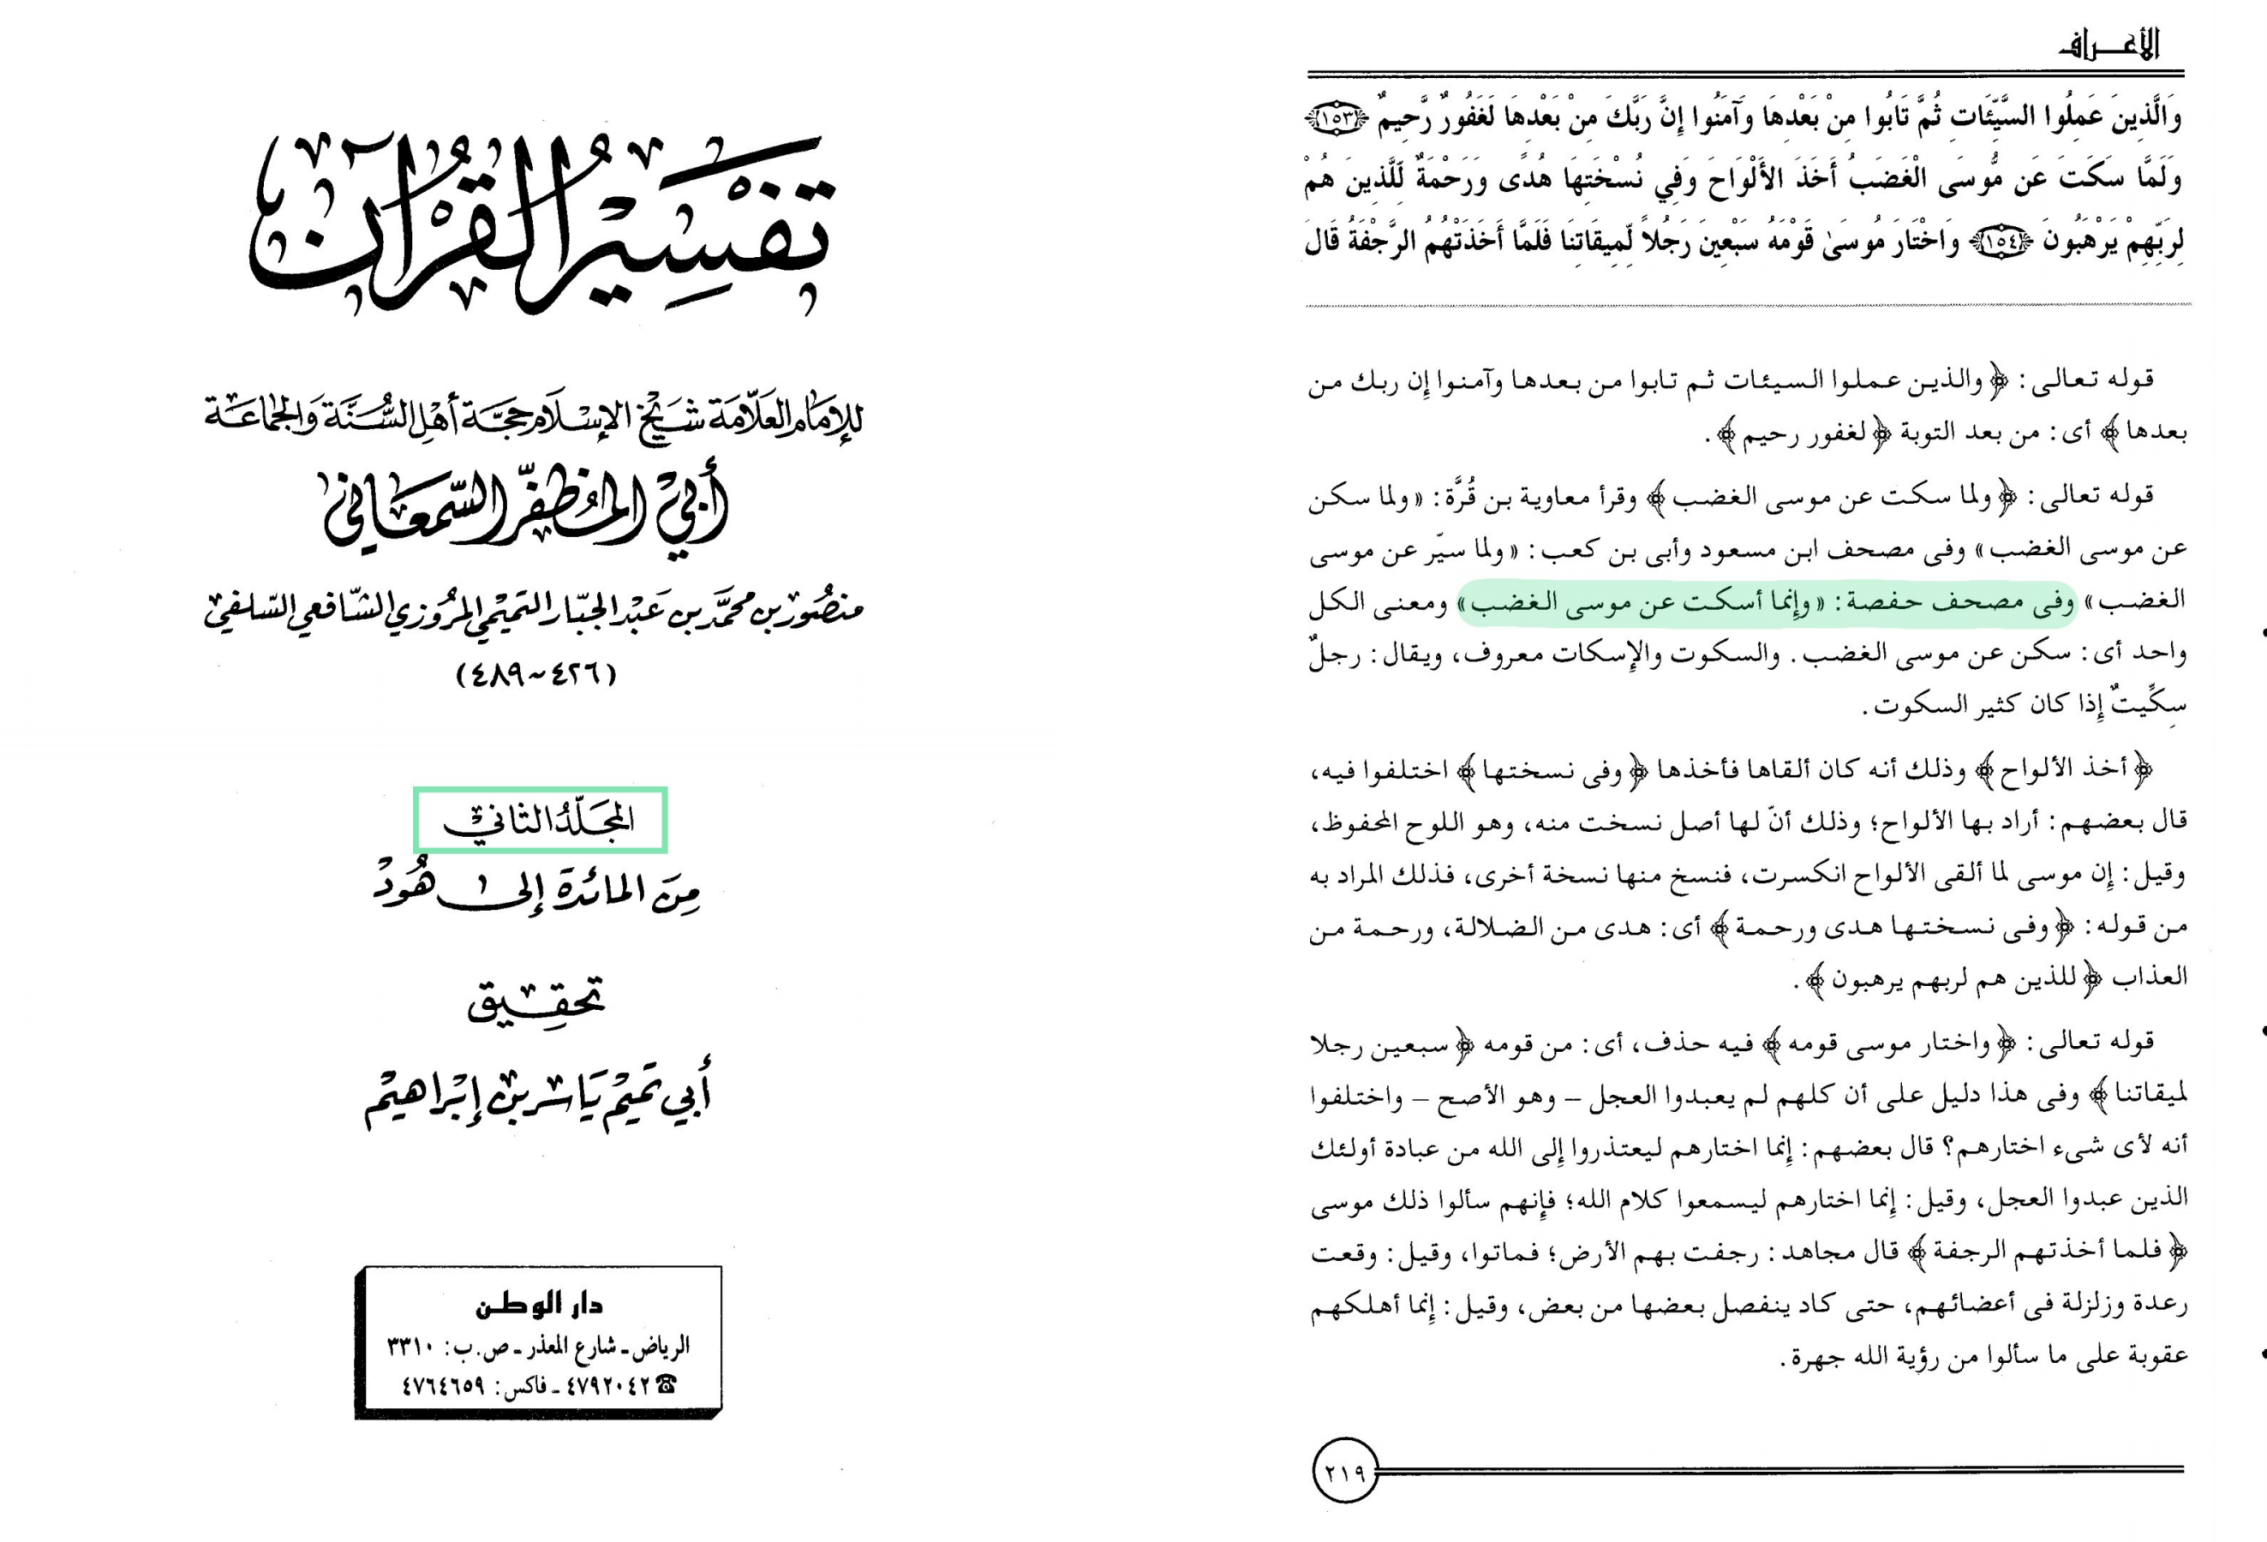 تفسير القرآن
للإمام العلّامة شيخ الإسلام حجّة أهل السُّنّة والجماعة
أبي المظفّر السّمعاني
منصور بن محمّد بن عبد الجبّار التميمي المروزي الشّافعي السّلفي
(٤٢٦~٤٨٩)
المجلّد الثاني
من المائدة إلى هُود
تحقيق
أبي تميم ياسر بن إبراهيم
دار الوطن
الرياض ـ شارع المعذر ـ ص.ب: ٣٣١٠
☎ ٤٧٩٢٠٤٢ ـ فاكس: ٤٧٦٤٦٥٩
الأعراف
وَالَّذِينَ عَمِلُوا السَّيِّئَاتِ ثُمَّ تَابُوا مِنْ بَعْدِهَا وَآمَنُوا إِنَّ رَبَّكَ مِنْ بَعْدِهَا لَغَفُورٌ رَّحِيمٌ ﴿١٥٣﴾
وَلَمَّا سَكَتَ عَن مُّوسَى الْغَضَبُ أَخَذَ الأَلْوَاحَ وَفِي نُسْخَتِهَا هُدًى وَرَحْمَةٌ لِّلَّذِينَ هُمْ
لِرَبِّهِمْ يَرْهَبُونَ ﴿١٥٤﴾ وَاخْتَارَ مُوسَىٰ قَوْمَهُ سَبْعِينَ رَجُلاً لِّمِيقَاتِنَا فَلَمَّا أَخَذَتْهُمُ الرَّجْفَةُ قَالَ
قوله تعالى: ﴿والذين عملوا السيئات ثم تابوا من بعدها وآمنوا إن ربك من
بعدها﴾ أى: من بعد التوبة ﴿لغفور رحيم﴾.
قوله تعالى: ﴿ولما سكت عن موسى الغضب﴾ وقرأ معاوية بن قُرَّة: «ولما سكن
عن موسى الغضب» وفى مصحف ابن مسعود وأبى بن كعب: «ولما سيّر عن موسى
الغضب» وفى مصحف حفصة: «وإنما أسكت عن موسى الغضب» ومعنى الكل
واحد أى: سكن عن موسى الغضب. والسكوت والإسكات معروف، ويقال: رجلٌ
سِكِّيتٌ إذا كان كثير السكوت.
﴿أخذ الألواح﴾ وذلك أنه كان ألقاها فأخذها ﴿وفى نسختها﴾ اختلفوا فيه،
قال بعضهم: أراد بها الألواح؛ وذلك أنّ لها أصل نسخت منه، وهو اللوح المحفوظ،
وقيل: إن موسى لما ألقى الألواح انكسرت، فنسخ منها نسخة أخرى، فذلك المراد به
من قوله: ﴿وفى نسختها هدى ورحمة﴾ أى: هدى من الضلالة، ورحمة من
العذاب ﴿للذين هم لربهم يرهبون﴾.
قوله تعالى: ﴿واختار موسى قومه﴾ فيه حذف، أى: من قومه ﴿سبعين رجلا
لميقاتنا﴾ وفى هذا دليل على أن كلهم لم يعبدوا العجل – وهو الأصح – واختلفوا
أنه لأى شىء اختارهم؟ قال بعضهم: إنما اختارهم ليعتذروا إلى الله من عبادة أولئك
الذين عبدوا العجل، وقيل: إنما اختارهم ليسمعوا كلام الله؛ فإنهم سألوا ذلك موسى
﴿فلما أخذتهم الرجفة﴾ قال مجاهد: رجفت بهم الأرض؛ فماتوا، وقيل: وقعت
رعدة وزلزلة فى أعضائهم، حتى كاد ينفصل بعضها من بعض، وقيل: إنما أهلكهم
عقوبة على ما سألوا من رؤية الله جهرة.
٢١٩